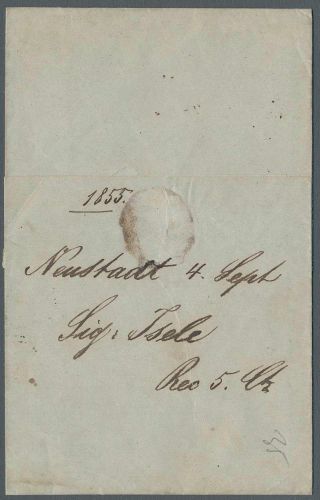 1855.
Neustadt 4. Sept
Sig: Isele
Rec 5. Ch